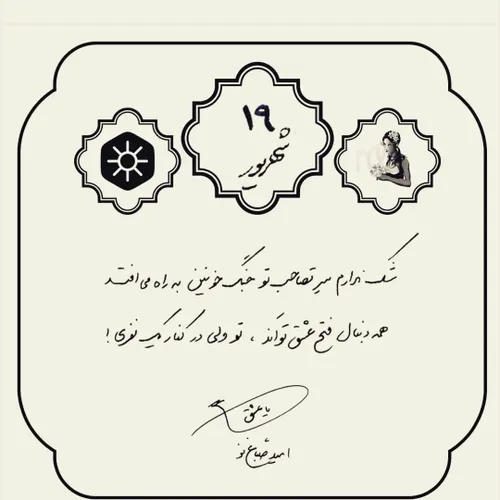 ۱۹
شهریور
شک ندارم سرِ تصاحب تو جنگ خونین به راه می افتد
همه دنبال فتح عشق تواَند ، تو ولی در کنار یک نفری !
یا عشق
امید صباغ نو